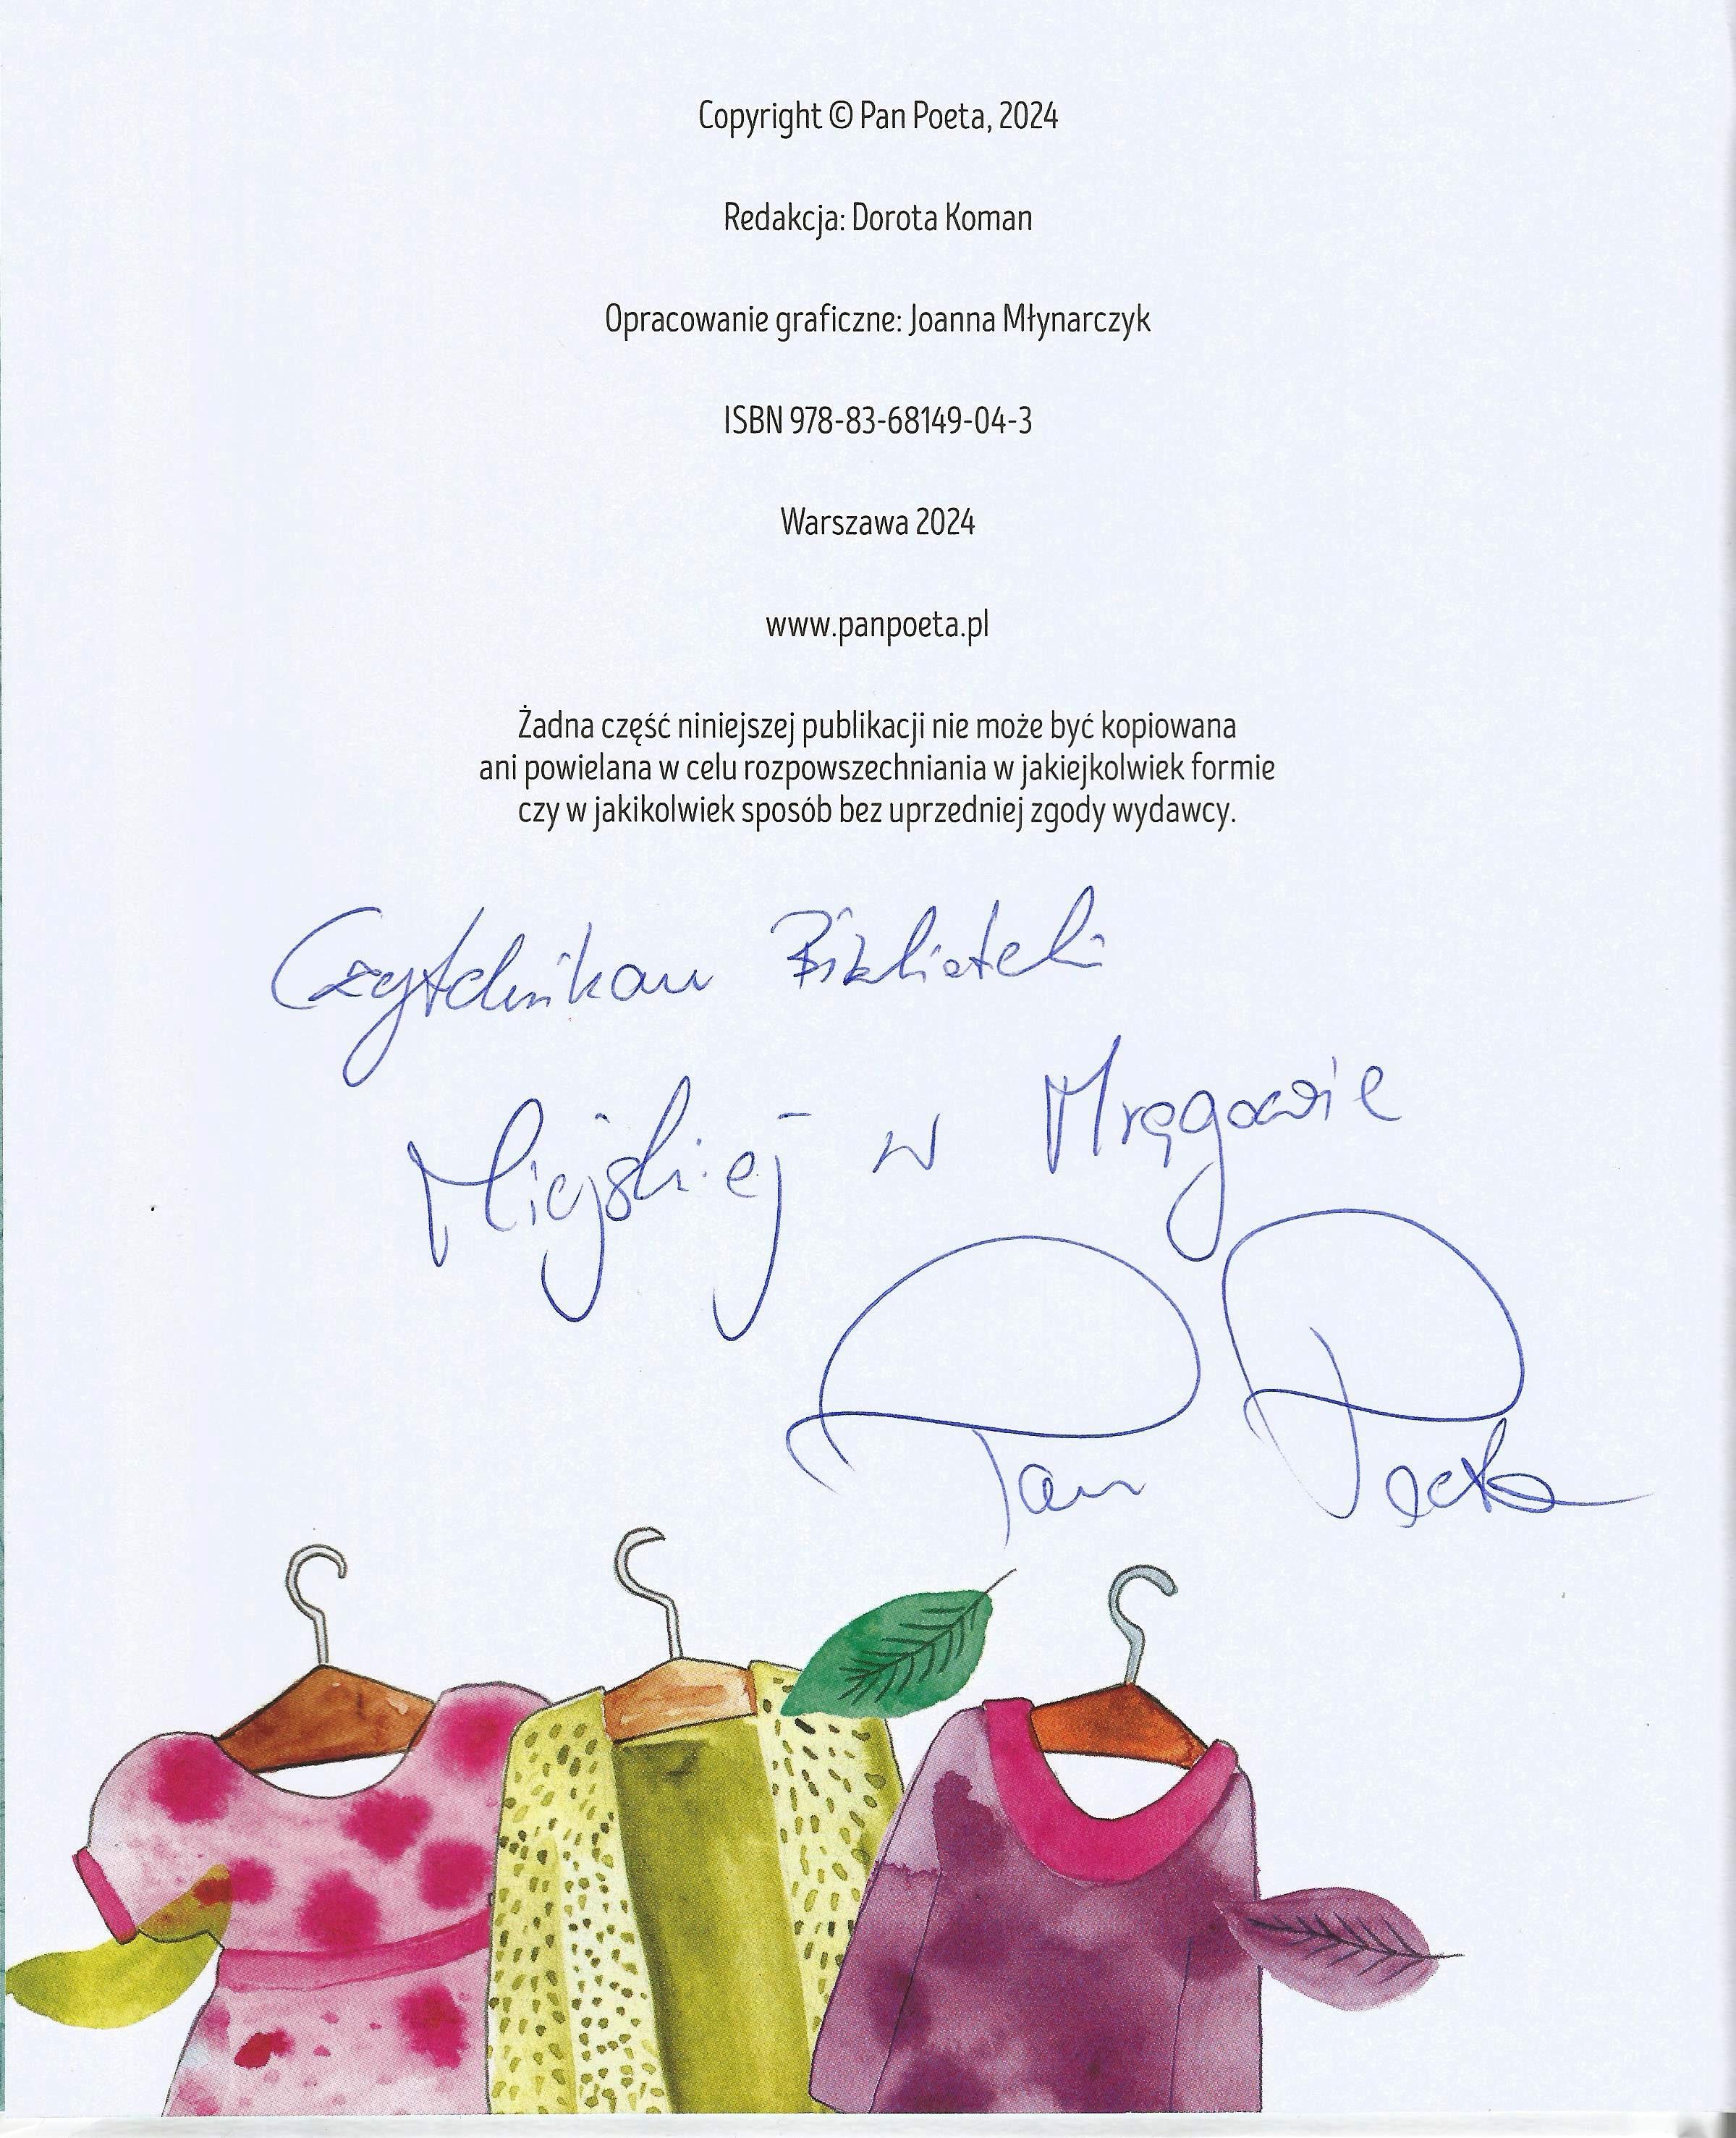 Copyright © Pan Poeta, 2024
Redakcja: Dorota Koman
Opracowanie graficzne: Joanna Młynarczyk
ISBN 978-83-68149-04-3
Warszawa 2024
www.panpoeta.pl
Żadna część niniejszej publikacji nie może być kopiowana
ani powielana w celu rozpowszechniania w jakiejkolwiek formie
czy w jakikolwiek sposób bez uprzedniej zgody wydawcy.
Czytelnikom Biblioteki
Miejskiej w Mrągowie
Pan Poeta